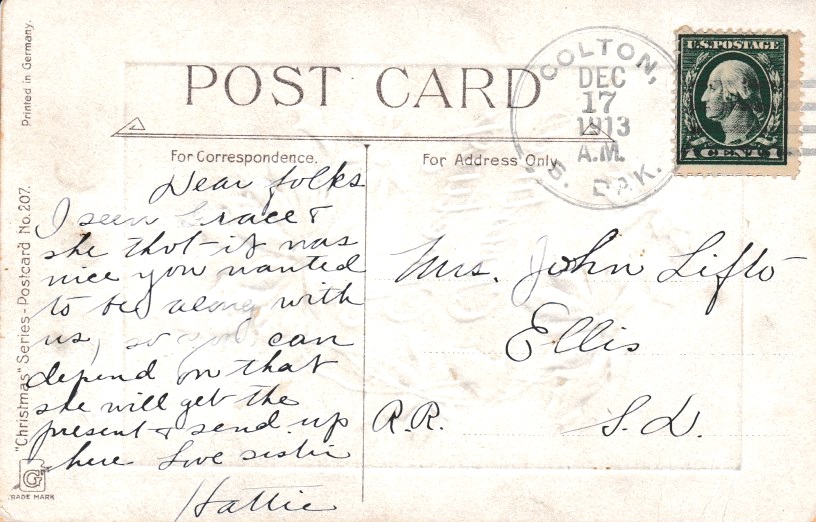 POST CARD
COLTON,
DEC
17
1913
A.M.
S. DAK.
U.S. POSTAGE
1 CENT 1
Printed in Germany.
"Christmas" Series - Postcard No. 207.
G
TRADE MARK
For Correspondence.
Dear folks
I seen Grace &
she thot it was
nice you wanted
to be along with
us, so you can
depend on that
she will get the
present & send up
here Love sister
Hattie
For Address Only.
Mrs. John Lifto
Ellis
R.R. S.D.